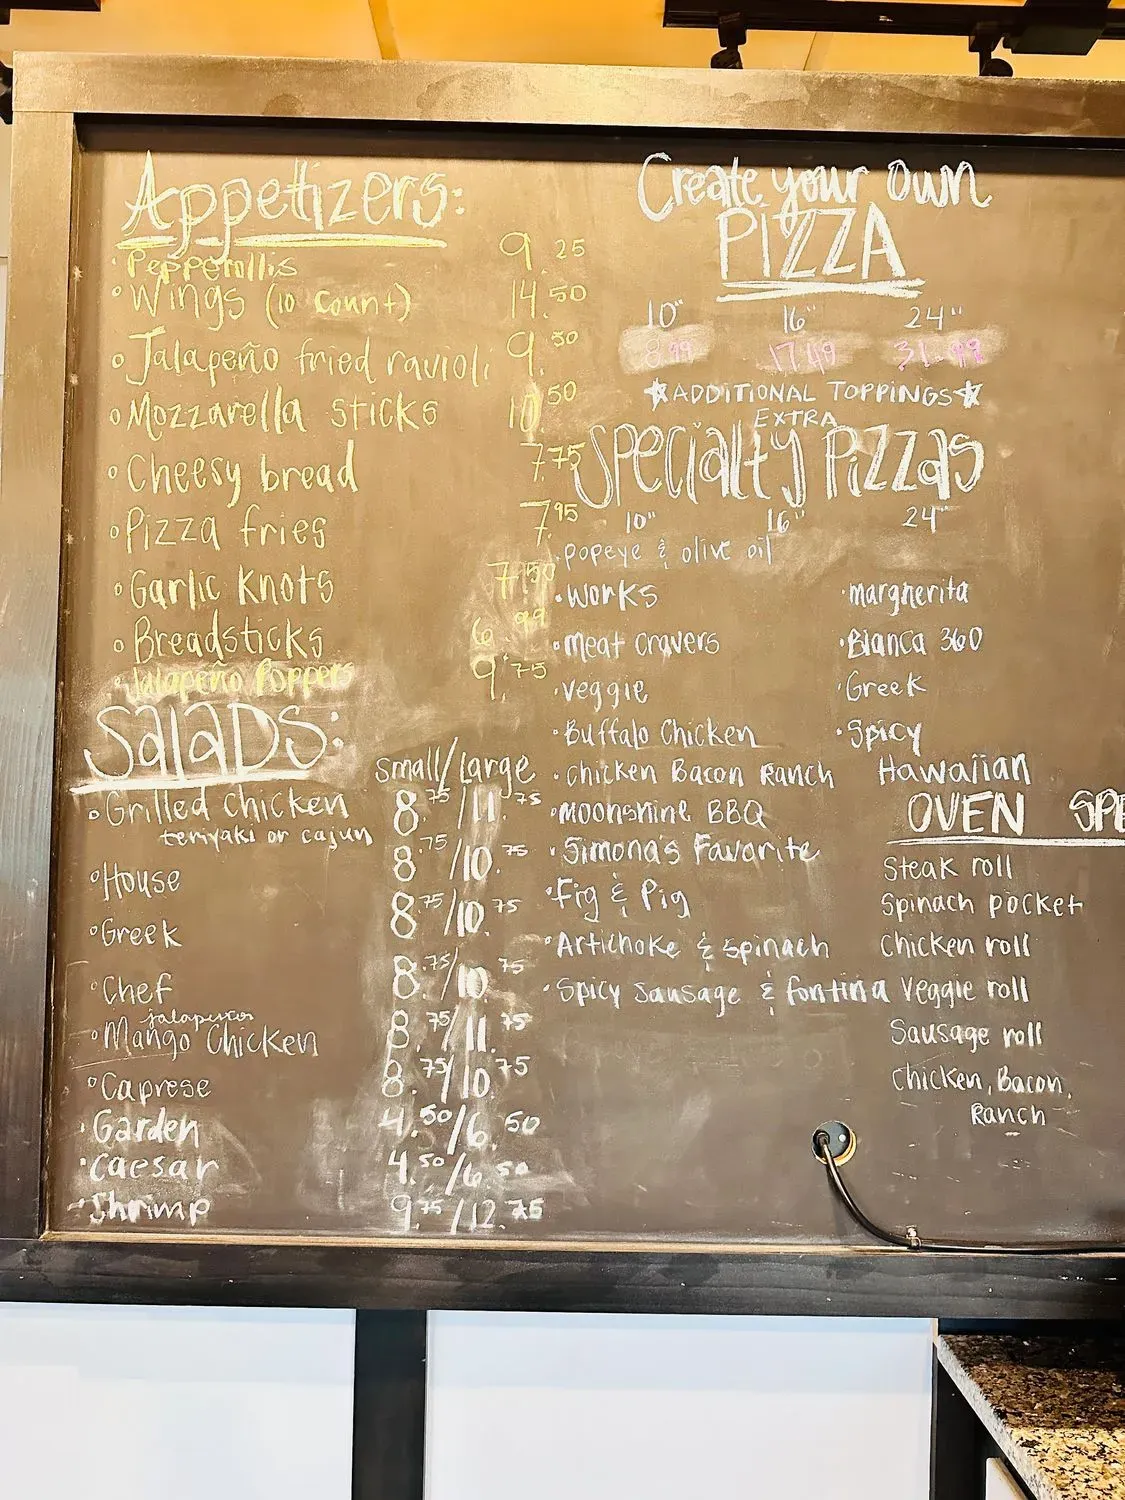 Appetizers:
Pepperollis 9.25
Wings (10 count) 14.50
Jalapeño fried ravioli 9.50
Mozzarella sticks 10.50
Cheesy bread 7.75
Pizza fries 7.95
Garlic Knots 7.50
Breadsticks 6.99
Jalapeño Poppers 9.75
Salads:
Small/Large
Grilled Chicken 8.75/11.75
teriyaki or cajun
House 8.75/10.75
Greek 8.75/10.75
Chef 8.75/10.75
jalapeños
Mango Chicken 8.75/11.75
Caprese 8.75/10.75
Garden 4.50/6.50
Caesar 4.50/6.50
Shrimp 9.75/12.75
Create your own
PIZZA
10" 16" 24"
8.99 17.49 31.49
ADDITIONAL TOPPINGS
EXTRA
Specialty Pizzas
10" 16" 24"
popeye & olive oil
Works
Meat Cravers
Veggie
Buffalo Chicken
Chicken Bacon Ranch
Moonshine BBQ
Simona's Favorite
Fig & Pig
Artichoke & Spinach
Spicy Sausage & fontina
margherita
Bianca 360
Greek
Spicy
Hawaiian
OVEN SPE
Steak roll
Spinach pocket
Chicken roll
Veggie roll
Sausage roll
Chicken, Bacon,
Ranch